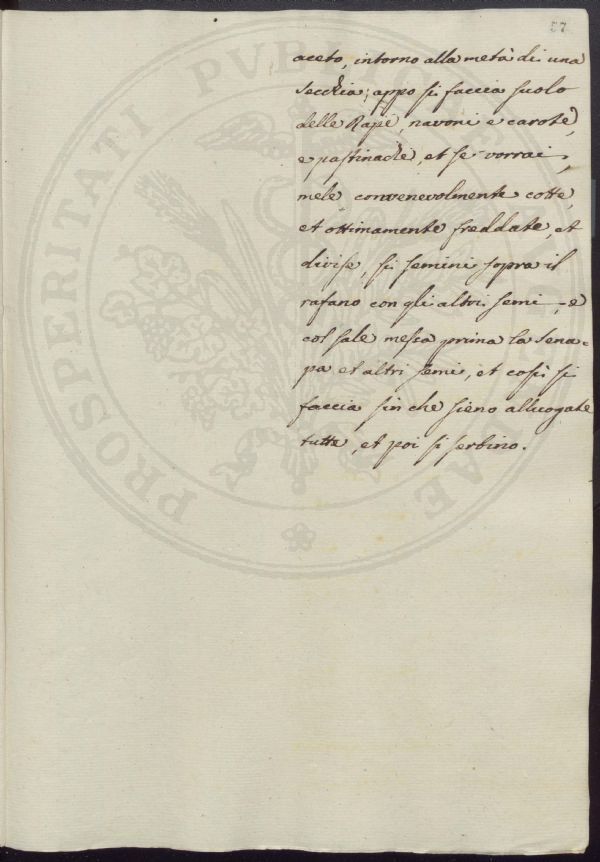 57
aceto, intorno alla metà di una
secchia; appo si faccia suolo
delle Rape, navoni e carote,
e pastinache, et se vorrai,
mele convenevolmente cotte,
et ottimamente freddate, et
divise, si semini sopra il
rafano con gli altri semi, e
col sale mesca prima la Sena-
pa et altri semi, et così si
faccia sin che sieno alluogate
tutte, et poi si serbino.
PROSPERITATI PUBLICAE